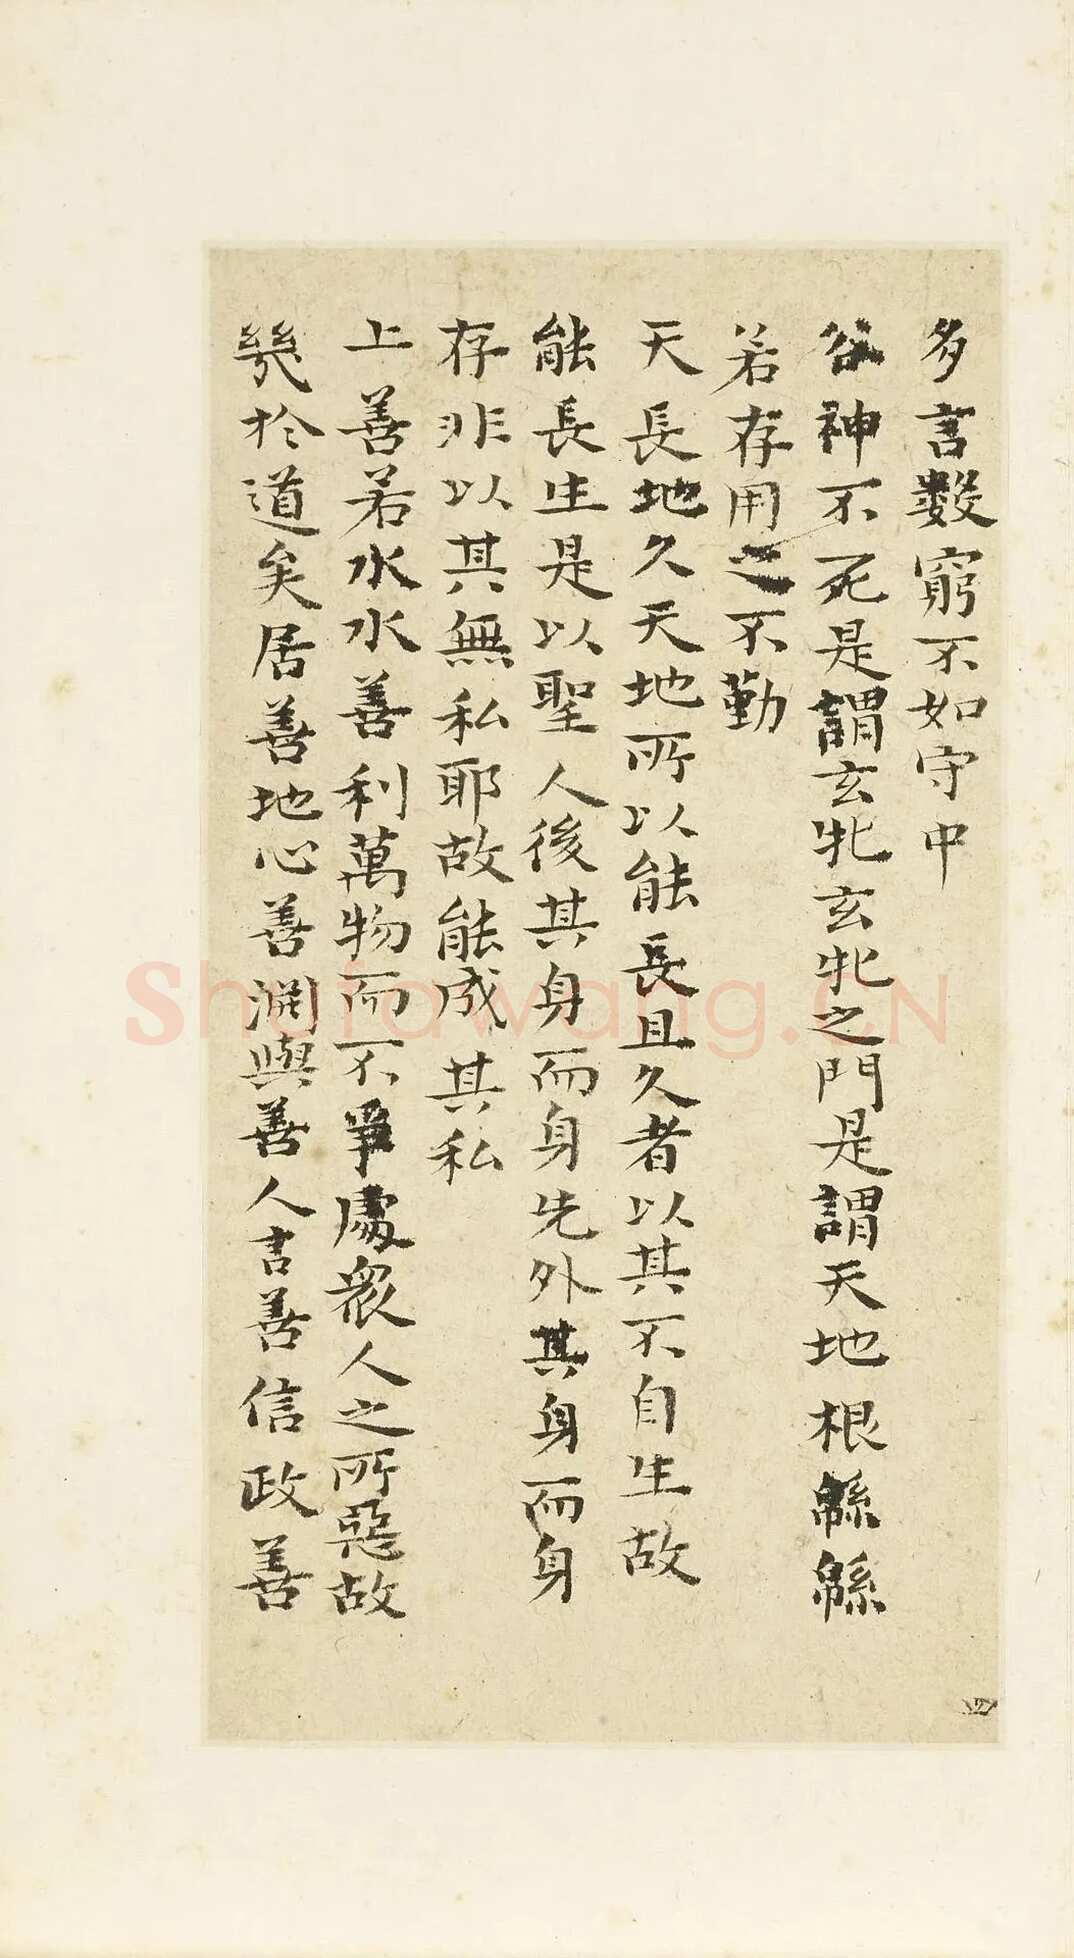 多言數窮不如守中
谷神不死是謂玄牝玄牝之門是謂天地根緜緜
若存用之不勤
天長地久天地所以能長且久者以其不自生故
能長生是以聖人後其身而身先外其身而身
存非以其無私耶故能成其私
上善若水水善利萬物而不爭處衆人之所惡故
幾於道矣居善地心善淵與善人言善信政善
Shufawang.CN